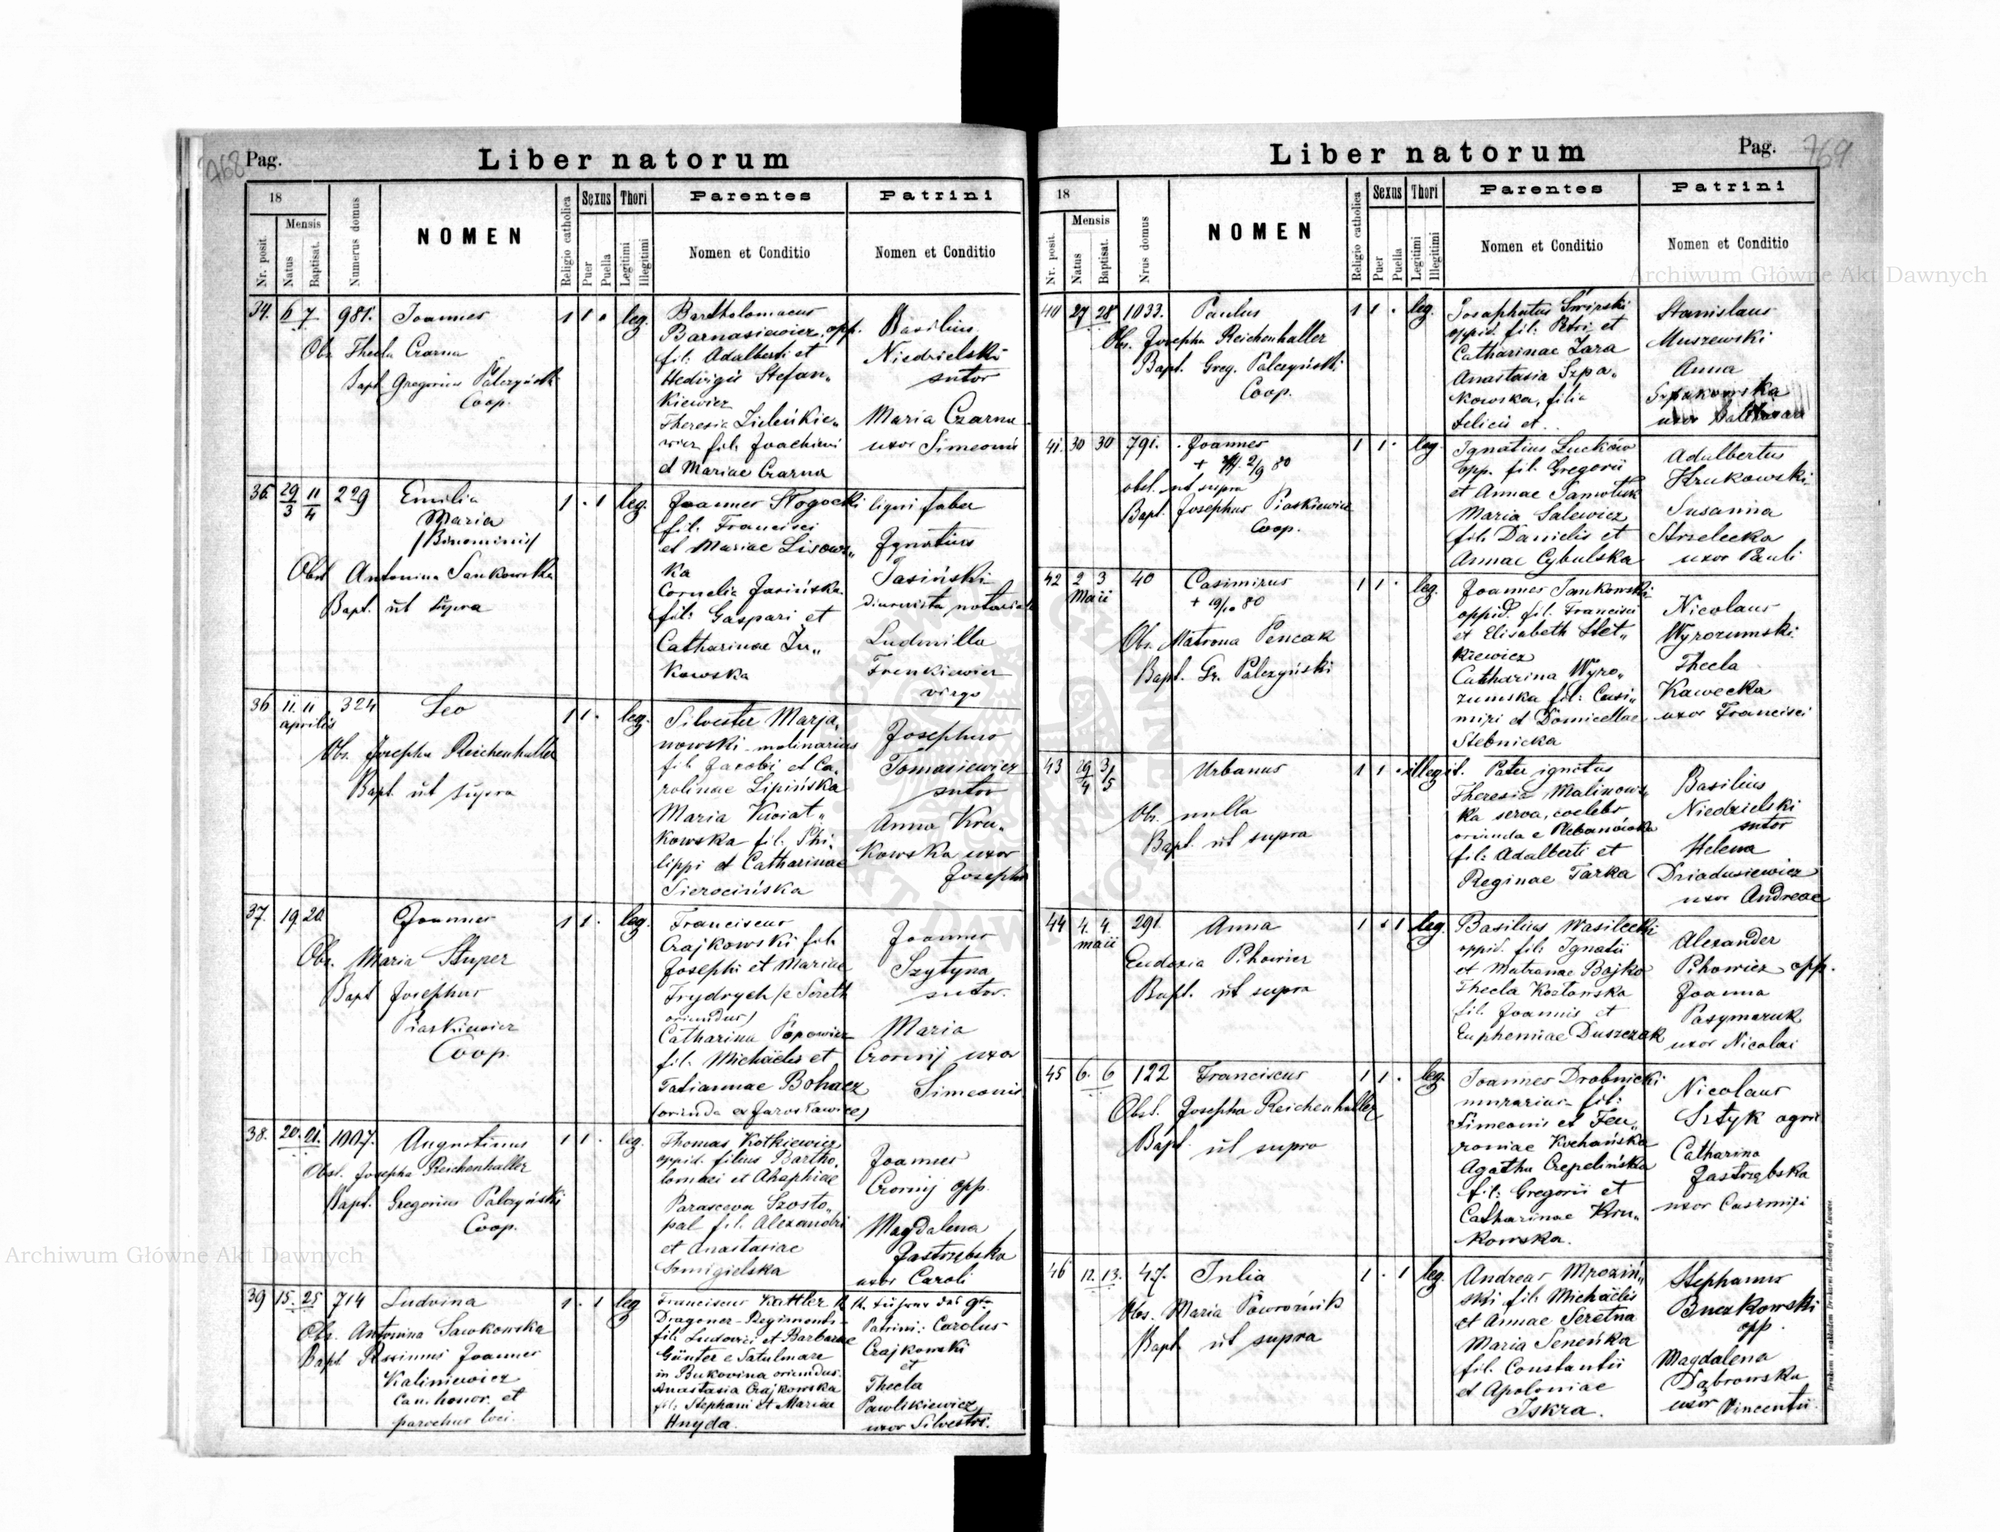 768 Pag.
Liber natorum
18
Mensis
Nr. posit.
Natus
Baptisat.
Numerus domus
NOMEN
Religio catholica
Sexus
Puer
Puella
Thori
Legitimi
Illegitimi
Parentes
Nomen et Conditio
Patrini
Nomen et Conditio
34. 6 7 981. Joannes 1 1 . leg.
Obs. Thecla Czarna
Bapt. Gregorius Palczyński
Coop.
Bartholomaeus
Barnasiewicz, opp.
fil: Adalberti et
Hedvigis Stefan„
kiewicz
Theresia Zieleńkie„
wicz fil: Joachimi
et Mariae Czarna
Basilius
Niedzielski
sutor
Maria Czarna
uxor Simeonis
35 29/3 11/4 229 Emilia 1 . 1 leg.
Maria
/Binominis/
Obst Antonina Sankowska
Bapt. ut supra
Joannes Rogocki
fil: Francisci
et Mariae Lisow„
ka
Cornelia Jasińska
fil: Gaspari et
Catharinae Żu„
kowska
ligni faber
Ignatius
Jasiński
diurnista notarial
Ludmilla
Frenkiewicz
virgo
36 11. 11 324 Leo 1 1 . leg.
aprilis
Obs. Josepha Reichenhaller
Bapt ut supra
Silvester Marja„
nowski - molinarius
fil Jacobi et Ca„
rolinae Lipińska
Maria Kwiat„
kowska fil. Phi„
lippi et Catharinae
Sierocińska
Josephus
Tomasiewicz
sutor
Anna Kru„
kowska uxor
Josephi
37. 19 20 Joannes 1 1 . leg.
Obs. Maria Stuper
Bapt Josephus
Piaskiewicz
Coop.
Franciscus
Czajkowski fil.
Josephi et Mariae
Frydrych /e Sereth
oriundus/
Catharina Popowicz
fil. Michaelis et
Tatiannae Bohacz
(oriunda ex Jarosławice)
Joannes
Szytyna
sutor.
Maria
Czornij uxor
Simeonis.
38. 20. 21. 1007. Augustinus 1 1 . leg.
Obst. Josepha Reichenhaller
Bapt. Gregorius Palczyński
Coop.
Thomas Kotkiewicz
oppid. filius Bartho„
lomaei et Ahaphiae
Parasceva Szosto„
pal fil. Alexandri
et Anastasiae
Smigielska
Joannes
Czornij opp.
Magdalena
Jastrzębska
uxor Caroli
39 15. 25 714 Ludvina 1 . 1 leg
Obs. Antonina Sawkowska
Bapt Rssimus Joannes
Kaliniewicz
Can. honor. et
parochus loci.
Franciscus Kattler
Dragoner-Regiments-
fil. Ludovici et Barbarae
Günter e Satulmare
in Bukovina oriundus.
Anastasia Czajkowska
fil. Stephani et Mariae
Hnyda.
Patrini: Carolus
Czajkowski
et
Thecla
Pawlikiewicz
uxor Silvestri.
Liber natorum
Pag. 769
18
Mensis
Nr. posit.
Natus
Baptisat.
Nrus domus
NOMEN
Religio catholica
Sexus
Puer
Puella
Thori
Legitimi
Illegitimi
Parentes
Nomen et Conditio
Patrini
Nomen et Conditio
40 27 28 1033. Paulus 1 1 . leg.
Obs. Josepha Reichenhaller
Bapt. Greg. Palczyński
Coop.
Josaphatus Świrski
oppid. fil: Petri et
Catharinae Zara
Anastasia Szpa„
kowska, filia
Felicis et..
Stanislaus
Muszewski
Anna
Szpakowska
uxor Balthasara
41. 30 30 791. Joannes 1 1 . leg
+ 2/9 80
obst. ut supra
Bapt. Josephus Piaskiewicz
Coop.
Ignatius Lucków
opp. fil: Gregorii
et Annae Samoluk
Maria Salewicz
fil: Danielis et
Annae Cybulska
Adalbertus
Krukowski
Susanna
Strzelecka
uxor Pauli
42 2 3 40 Casimirus 1 1 . leg.
Maii + 19/10 80
Obs. Matrona Pencak
Bapt. Gr. Palczyński
Joannes Jankowski
oppid. fil: Francisci
et Elisabeth Stet„
kiewicz
Catharina Wyro„
zumska fil: Casi„
miri et Domicellae
Stebnicka
Nicolaus
Wyrozumski
Thecla
Kawecka
uxor Francisci
43 29/4 3/5 Urbanus 1 1 . illegit.
Obs. nulla
Bapt. ut supra
Pater ignotus
Theresia Malinows„
ka serva, coelebs
oriunda e Plebanówka
fil: Adalberti et
Reginae Tarka
Basilius
Niedzielski
sutor
Helena
Dziadusiewicz
uxor Andreae
44 4. 4. 291 Anna 1 . 1 leg.
maii
Eudoxia Pihowicz
Bapt. ut supra
Basilius Wasilecki
oppid. fil: Ignatii
et Matronae Bajko
Thecla Kozłowska
fil. Joannis et
Euphemiae Duszczak
Alexander
Pihowicz opp.
Joanna
Pasymaruk
uxor Nicolai
45 6. 6 122 Franciscus 1 1 . leg.
Obst. Josepha Reichenhaller
Bapt. ut supra
Joannes Drobnicki
murarius fil:
Simeonis et Feu„
roniae Kochańska
Agatha Czepelińska
fil: Gregorii et
Catharinae Kru„
kowska.
Nicolaus
Sztyk agri
Catharina
Jastrzębska
uxor Casimiri
46 12. 13. 47. Julia 1 . 1 leg.
Obs. Maria Powroźnik
Bapt. ut supra
Andreas Mroziń„
ski fil: Michaelis
et Annae Seretna
Maria Seneńka
fil. Constantii
et Apoloniae
Iskra.
Stephanus
Buczkowski
opp
Magdalena
Dąbrowska
uxor Vincentii
Drukiem i nakładem Drukarni Ludowej we Lwowie.
Archiwum Główne Akt Dawnych
Archiwum Główne Akt Dawnych
ARCHIWUM GŁÓWNE AKT DAWNYCH